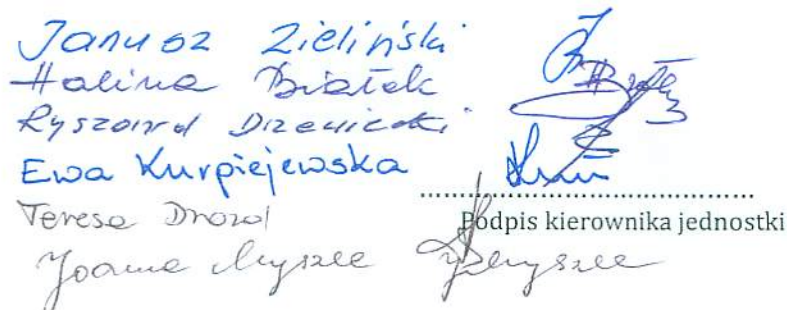 Janusz Zieliński
Halina Białek
Ryszard Drzewiecki
Ewa Kurpiejewska
Teresa Drozd
Podpis kierownika jednostki
Joanna